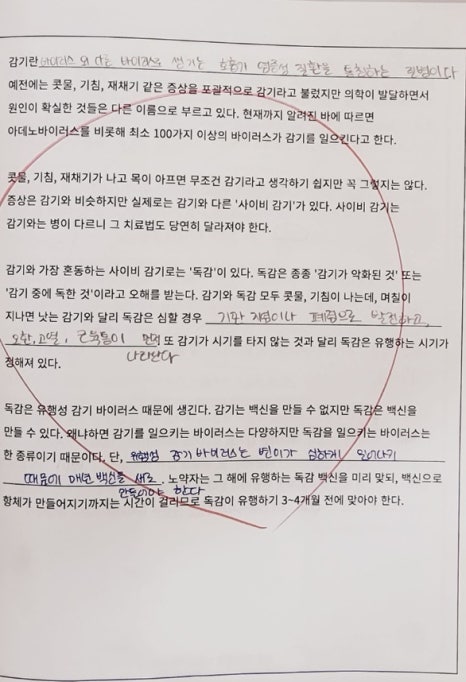 감기란 바이러스 외 다른 바이러스로 생기는 호흡기 염증성 질환을 통칭하는 질병이다
예전에는 콧물, 기침, 재채기 같은 증상을 포괄적으로 감기라고 불렀지만 의학이 발달하면서
원인이 확실한 것들은 다른 이름으로 부르고 있다. 현재까지 알려진 바에 따르면
아데노바이러스를 비롯해 최소 100가지 이상의 바이러스가 감기를 일으킨다고 한다.
콧물, 기침, 재채기가 나고 목이 아프면 무조건 감기라고 생각하기 쉽지만 꼭 그렇지는 않다.
증상은 감기와 비슷하지만 실제로는 감기와 다른 '사이비 감기'가 있다. 사이비 감기는
감기와는 병이 다르니 그 치료법도 당연히 달라져야 한다.
감기와 가장 혼동하는 사이비 감기로는 '독감'이 있다. 독감은 종종 '감기가 악화된 것' 또는
'감기 중에 독한 것'이라고 오해를 받는다. 감기와 독감 모두 콧물, 기침이 나는데, 며칠이
지나면 낫는 감기와 달리 독감은 심할 경우 폐렴으로 발전하고,
오한, 고열, 근육통이 먼저 또 감기가 시기를 타지 않는 것과 달리 독감은 유행하는 시기가
나타난다
정해져 있다.
독감은 유행성 감기 바이러스 때문에 생긴다. 감기는 백신을 만들 수 없지만 독감은 백신을
만들 수 있다. 왜냐하면 감기를 일으키는 바이러스는 다양하지만 독감을 일으키는 바이러스는
한 종류이기 때문이다. 단, 유행성 감기 바이러스는 변이가 심하게 일어나기
때문에 매년 백신을 새로 . 노약자는 그 해에 유행하는 독감 백신을 미리 맞되, 백신으로
만들어야 한다
항체가 만들어지기까지는 시간이 걸리므로 독감이 유행하기 3~4개월 전에 맞아야 한다.